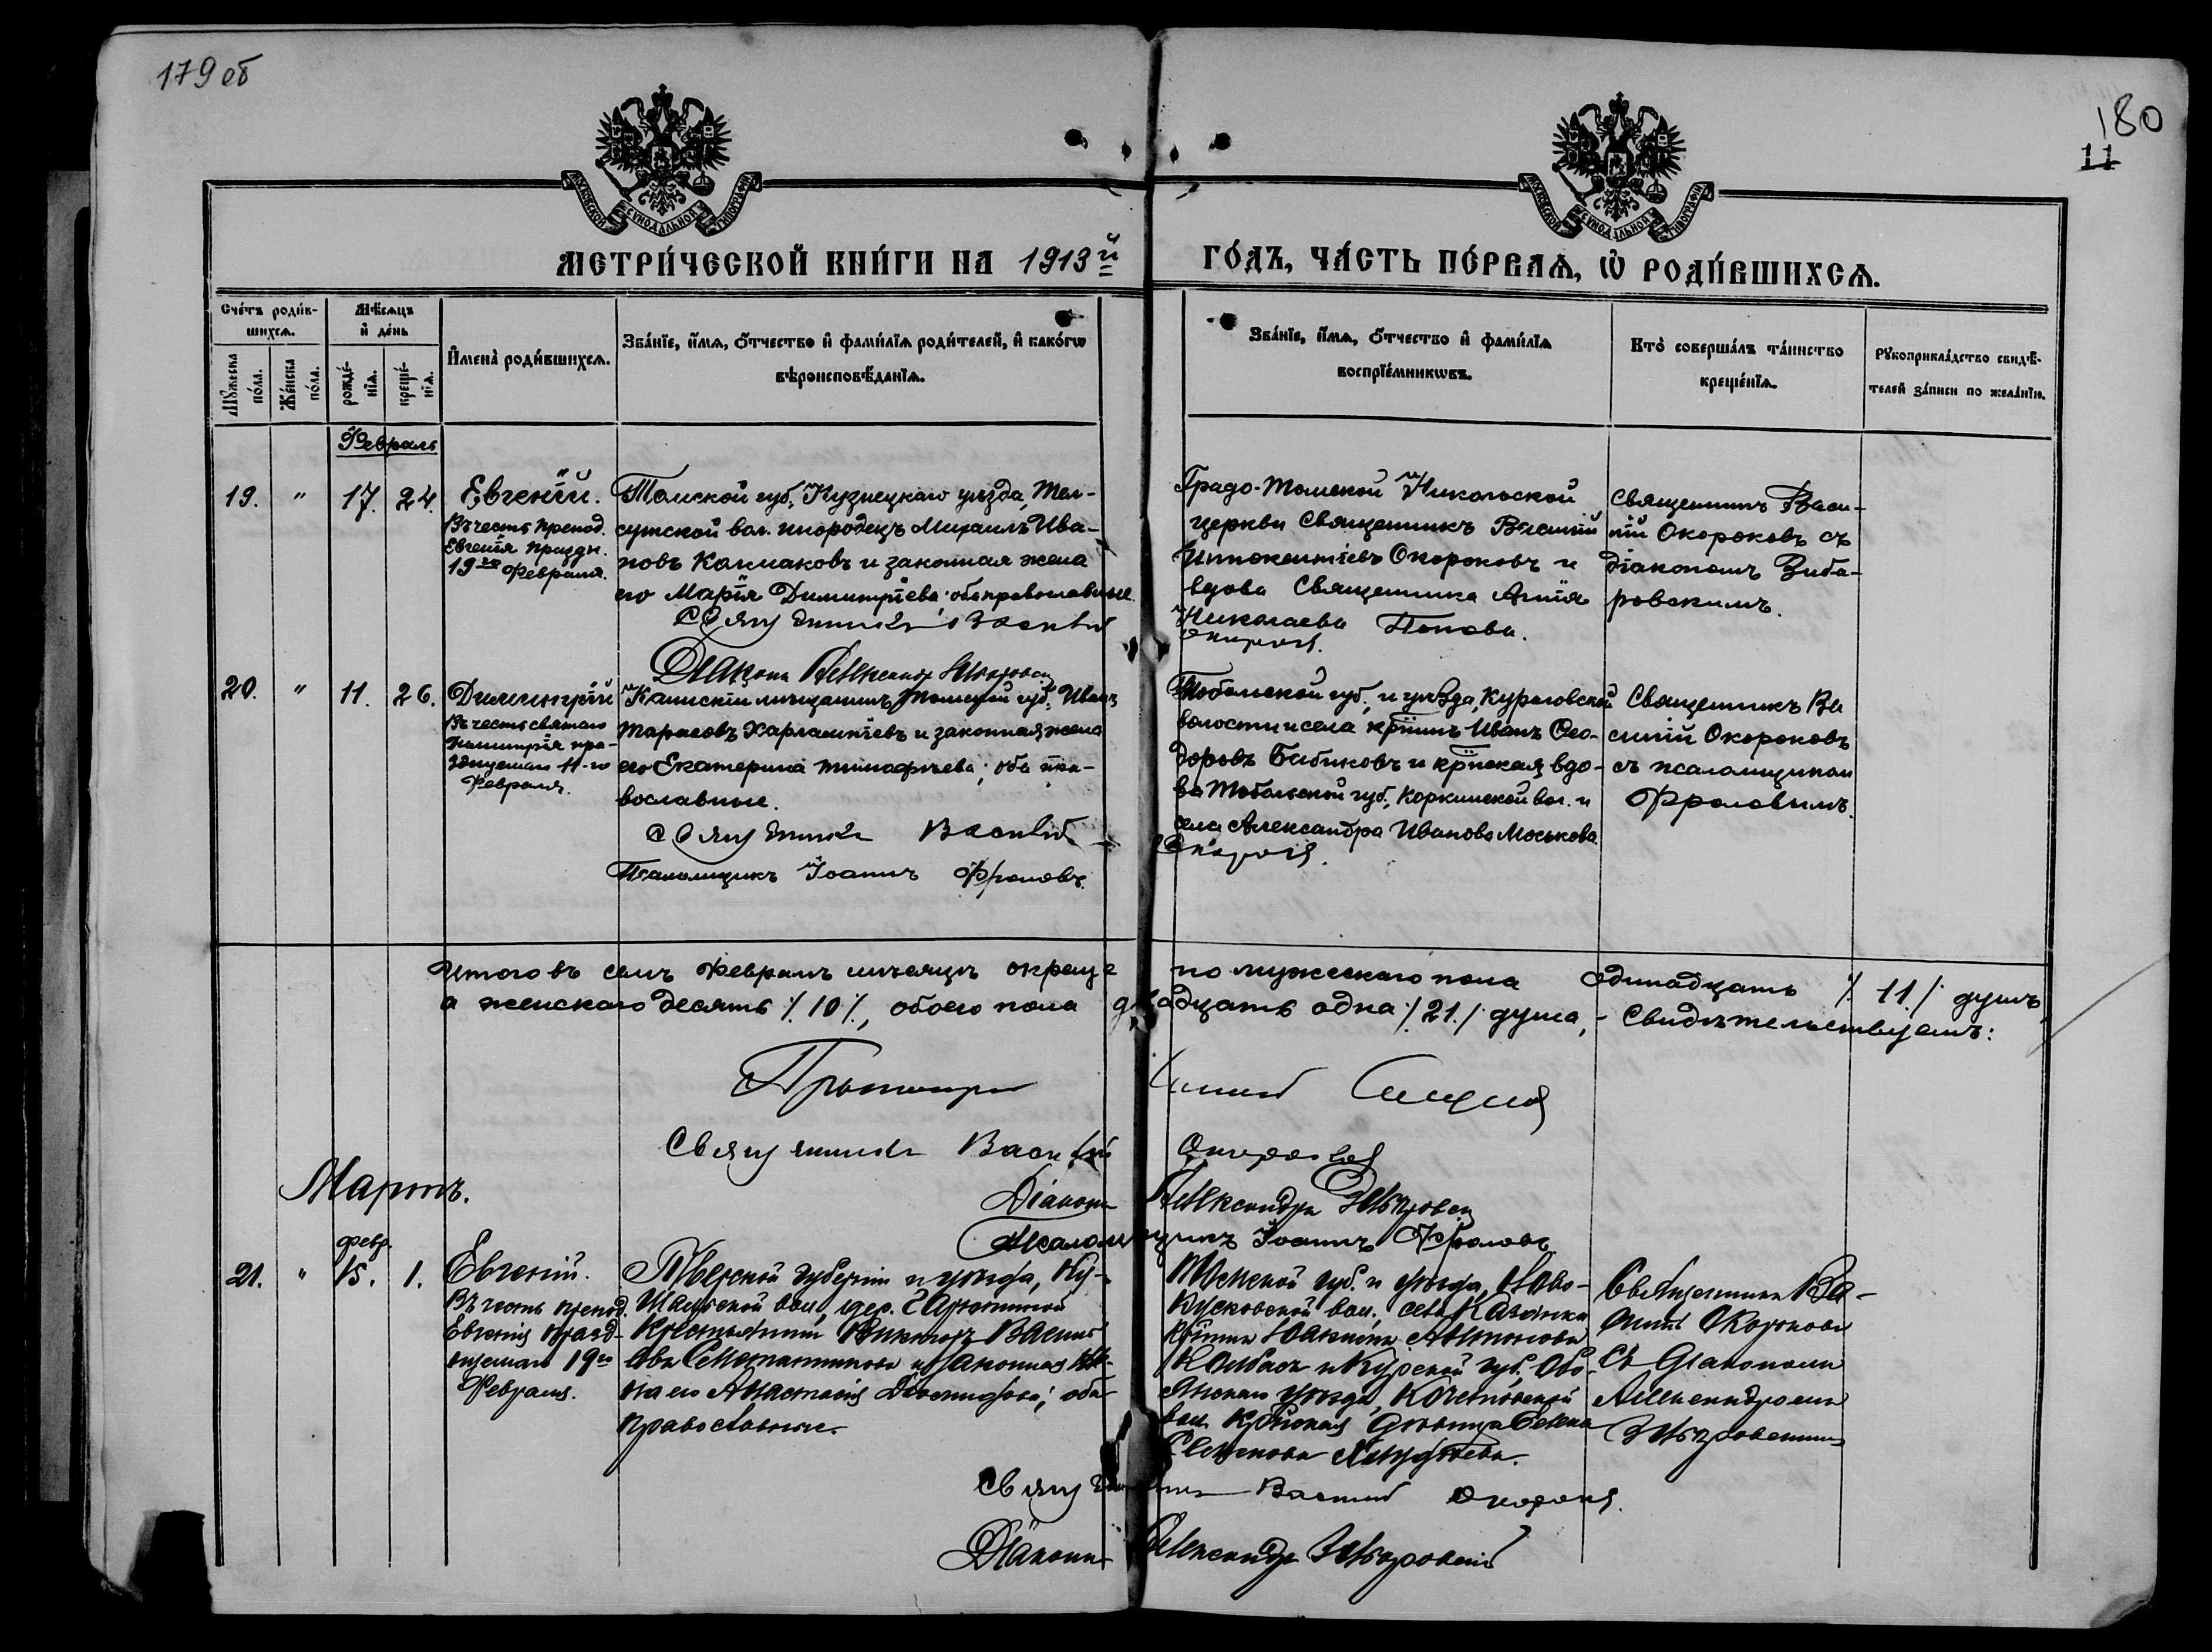 179 об
180
11
МОСКОВСКОЙ СѴНОДАЛЬНОЙ ТИПОГРАФІИ
МОСКОВСКОЙ СѴНОДАЛЬНОЙ ТИПОГРАФІИ
МЕТРИ́ЧЕСКОЙ КНИ́ГИ НА 1913й
ГО́ДЪ, ЧА́СТЬ ПЕ́РВАѦ, Ѡ РОДИ́ВШИХСѦ.
Сче́тъ роди́в-
шихсѧ.
Мꙋжеска по́ла.
Же́нска по́ла.
Мѣ́сѧцъ
и҆ де́нь
рожде́-
нїѧ.
креще́-
нїѧ.
И҆мена̀ роди́вшихсѧ.
Зва́нїе, и҆́мѧ, ѻ҆́тчество и҆ фами́лїѧ роди́телей, и҆ како́гѡ
вѣроисповѣ́данїѧ.
Зва́нїе, и҆́мѧ, ѻ҆́тчество и҆ фами́лїѧ
воспрїе́мникѡвъ.
Кто̀ соверша́лъ та́инство
креще́нїѧ.
Рꙋкоприкла́дство свидѣ́-
телей за́писи по жела́нїю.
Февраль
19. " 17. 24.
Евгеній.
Въ честь препод.
Евгенія праздн.
19го Февраля.
Томской губ., Кузнецкаго уѣзда, Тел-
сутской вол. инородецъ Михаилъ Ива-
новъ Калмаковъ и законная жена
его Марія Димитріева; оба православные.
Священникъ Василій
Діаконъ Александръ
Градо-Томской Никольской
церкви Священникъ Василій
Иннокентіевъ Окороковъ и
вдова Священника Агнія
Николаева Попова.
Окороковъ.
Священникъ Васи-
лій Окороковъ съ
діакономъ Виба-
ровскимъ.
20. " 11. 26.
Димитрій
Въ честь святаго
Димитрія пра-
зднуемаго 11-го
Февраля.
Каинскій мѣщанинъ Томской губ. Иванъ
Тарасовъ Харлампіевъ и законная жена
его Екатерина Тимофѣева; оба пра-
вославные.
Священникъ Василій
Псаломщикъ Іоаннъ Фроловъ.
Тобольской губ., и уѣзда, Куровской
волости и села кр̃нинъ Иванъ Ѳео-
доровъ Бабиковъ и кр̃нская вдо-
ва Тобольской губ., Коркинской вол. и
села Александра Иванова Моськова.
Окороковъ.
Священникъ Ва
силій Окороковъ
съ псаломщикомъ
Фроловымъ.
Итого въ семъ Февралѣ мѣсяцѣ окреще
но мужескаго пола одинадцать /. 11 /. душъ,
а женскаго десять /. 10 /., обоего пола двадцать одна /. 21. /. душа, - Свидѣтельствуемъ:
Протоіерей
Священникъ Василій Окороковъ
Діаконъ Александръ
Псаломщикъ Іоаннъ Фроловъ
Мартъ.
февр.
21. " 15. 1.
Евгеній.
Въ честь препод.
Евгенія празд-
нуемаго 19го
Февраля.
Тверской губерніи и уѣзда, Ку-
шальской вол., дер.
Крестьянинъ Викторъ Василь
евъ Селетантиновъ и законная же-
на его Анастасія; оба
православные.
Томской губ. и уѣзда, Ново-
Кусковской вол., села Казанки
кр̃нинъ
и Курской губ. Обо-
янскаго уѣзда,
вол. кр̃нская дѣвица Елена
Семенова
Священникъ Ва-
силій Окороковъ
съ Діакономъ
Александромъ
Священникъ Василій Окороковъ.
Діаконъ Александръ